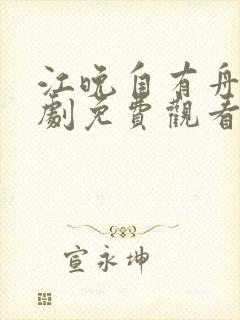 江晚自有舟
劇免費觀看
宣永坤